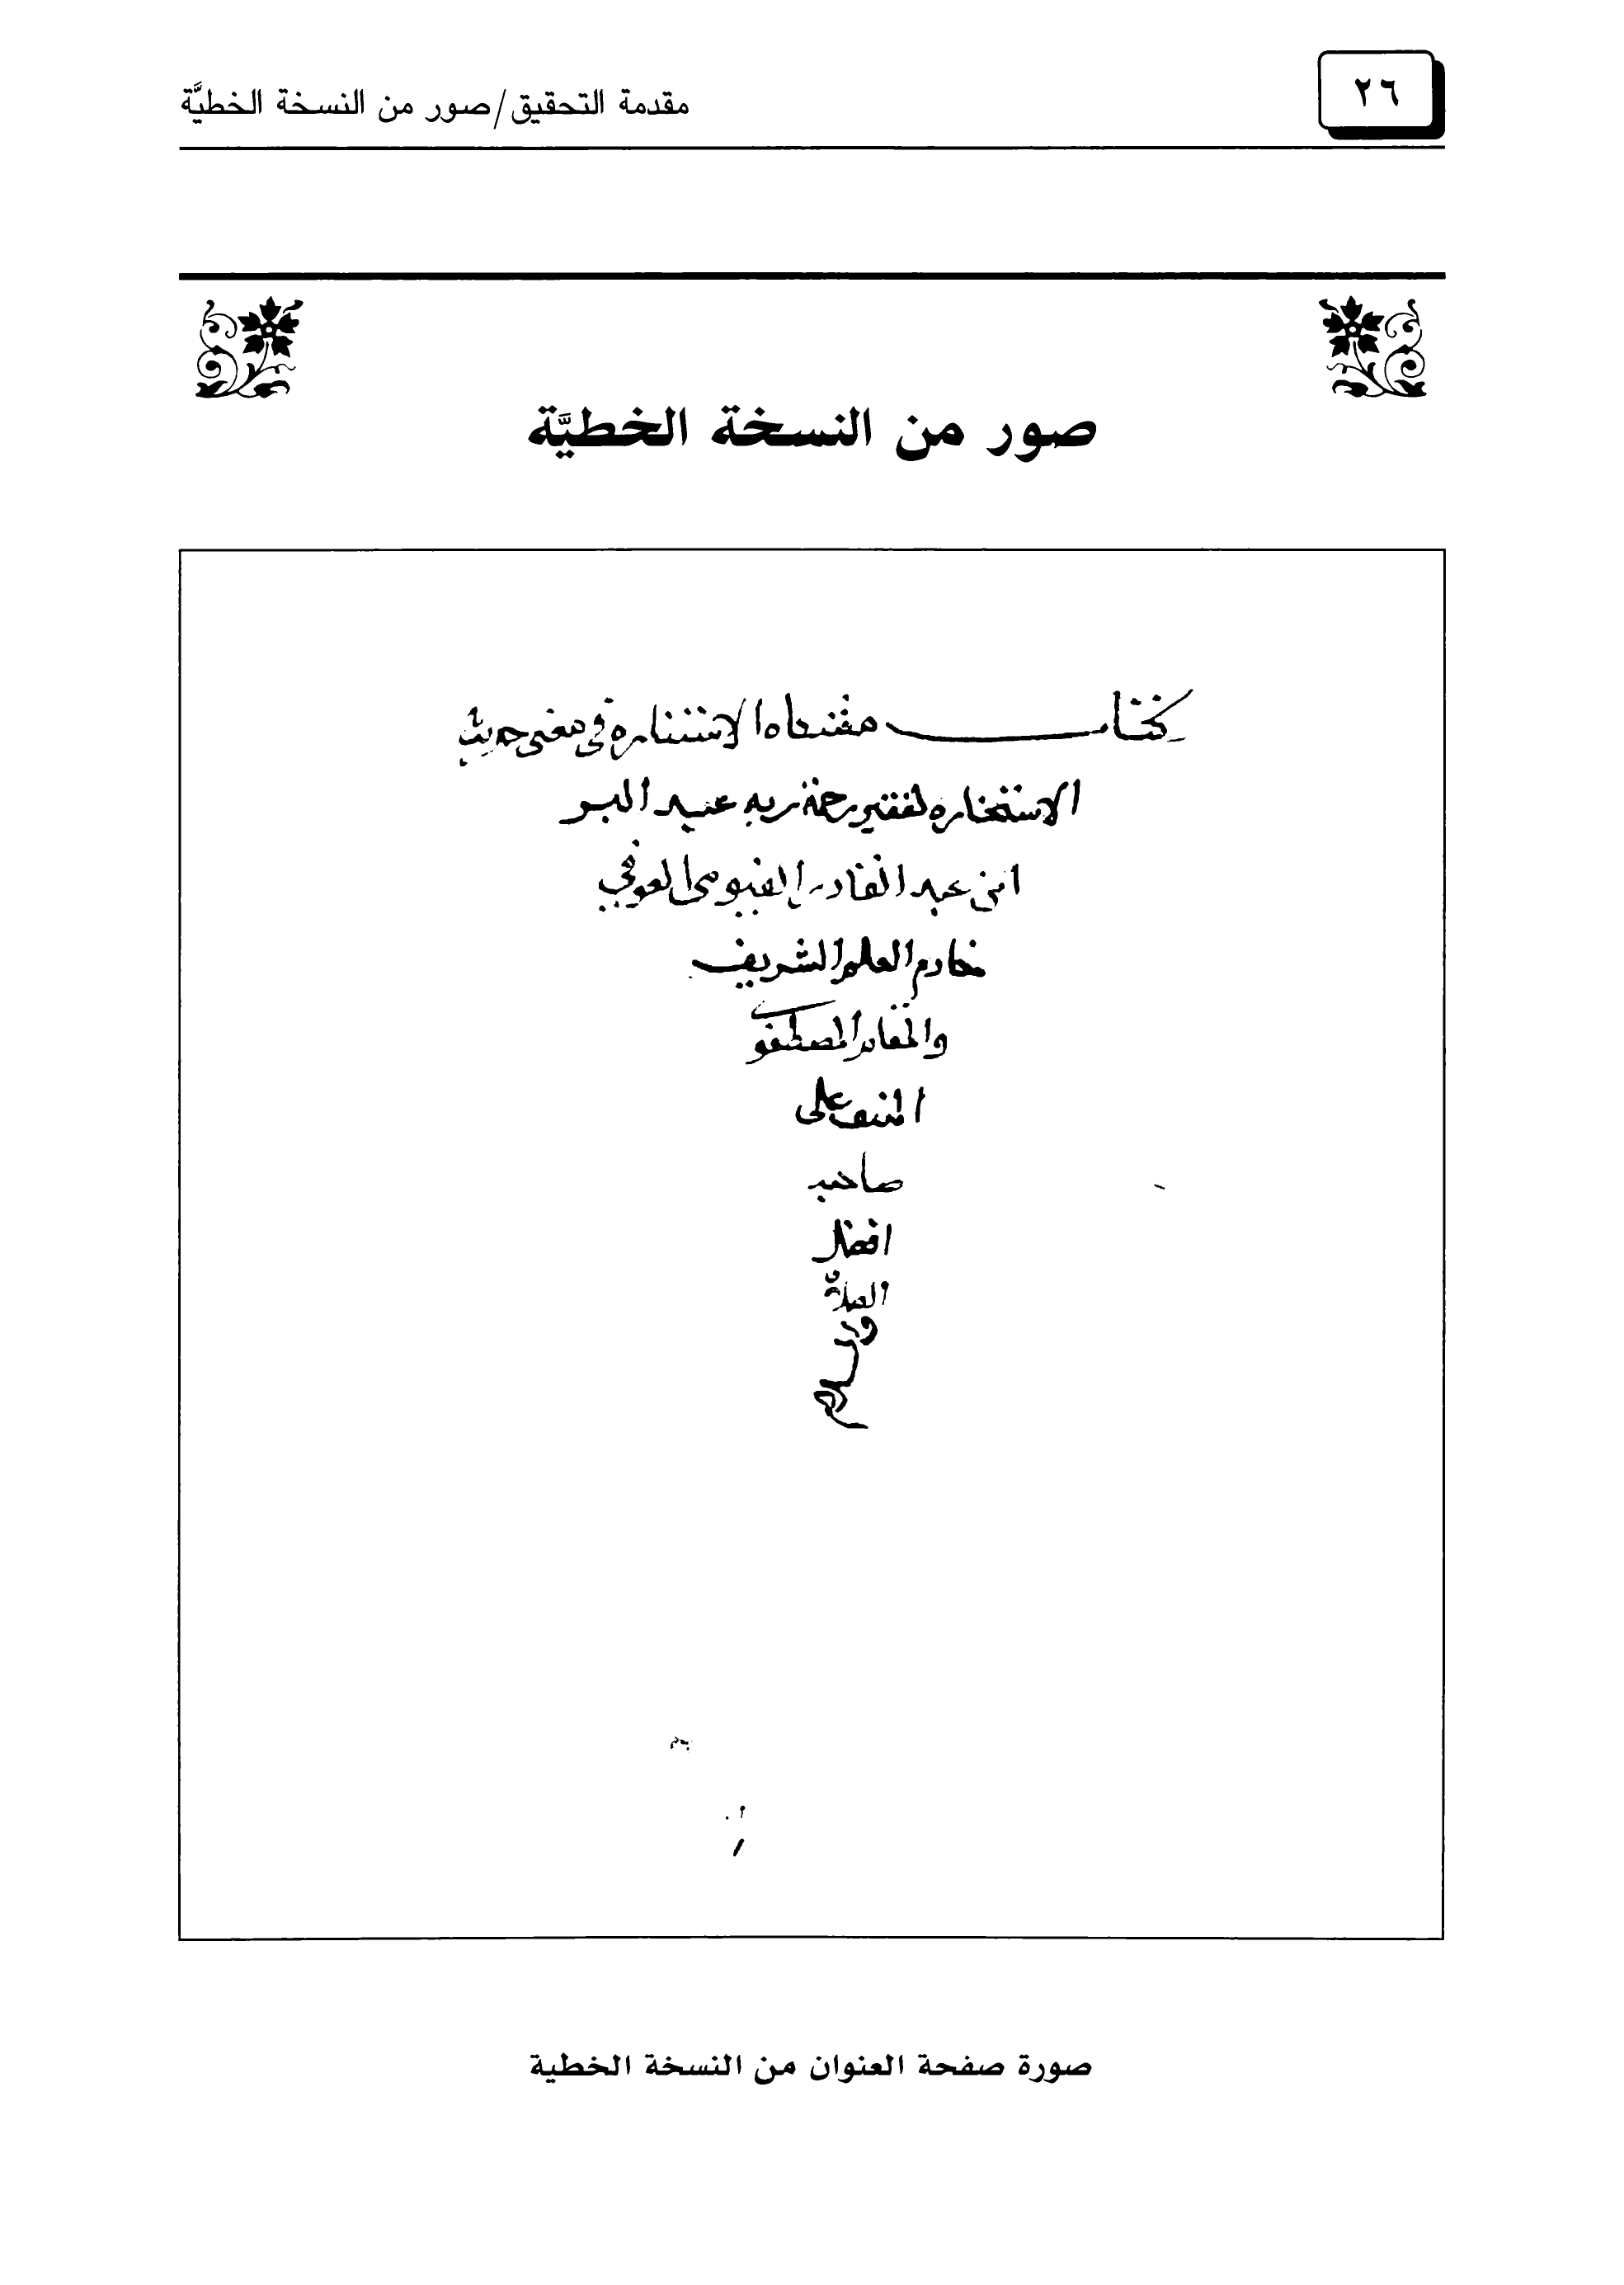 ٢٦
مقدمة التحقيق/صور من النسخة الخطيَّة
صور من النسخة الخطيَّة
كتاب مشكاه الاستناره في معنى حديث
الاستخاره لفقير رحمة ربه عبد البر
ابن عبد القادر الفيومي العوفي
خادم العلم الشريف
والمقام المصطفوي
المنيف على
صاحبه
افضل
الصلاة
والسلام
صورة صفحة العنوان من النسخة الخطية